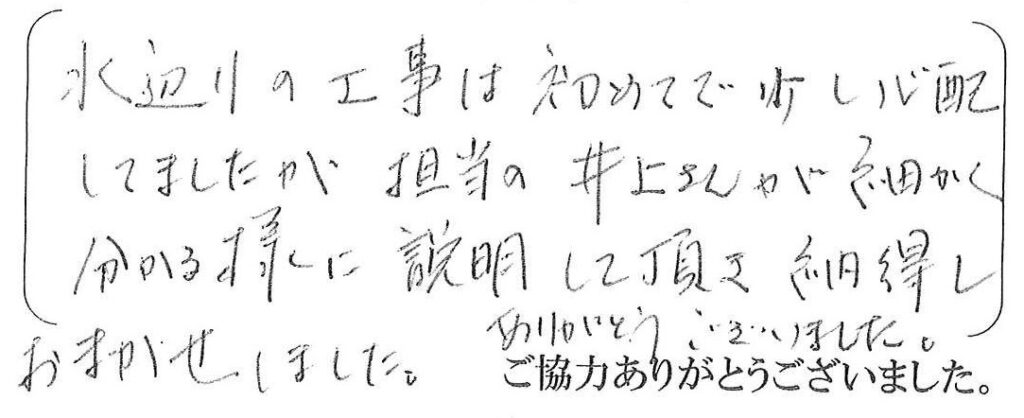 水辺りの工事は初めてで少し心配
してましたが 担当の 井上さんが細かく
分かる様に 説明して頂き 納得し
おまかせしました。
ありがとうございました。
ご協力ありがとうございました。